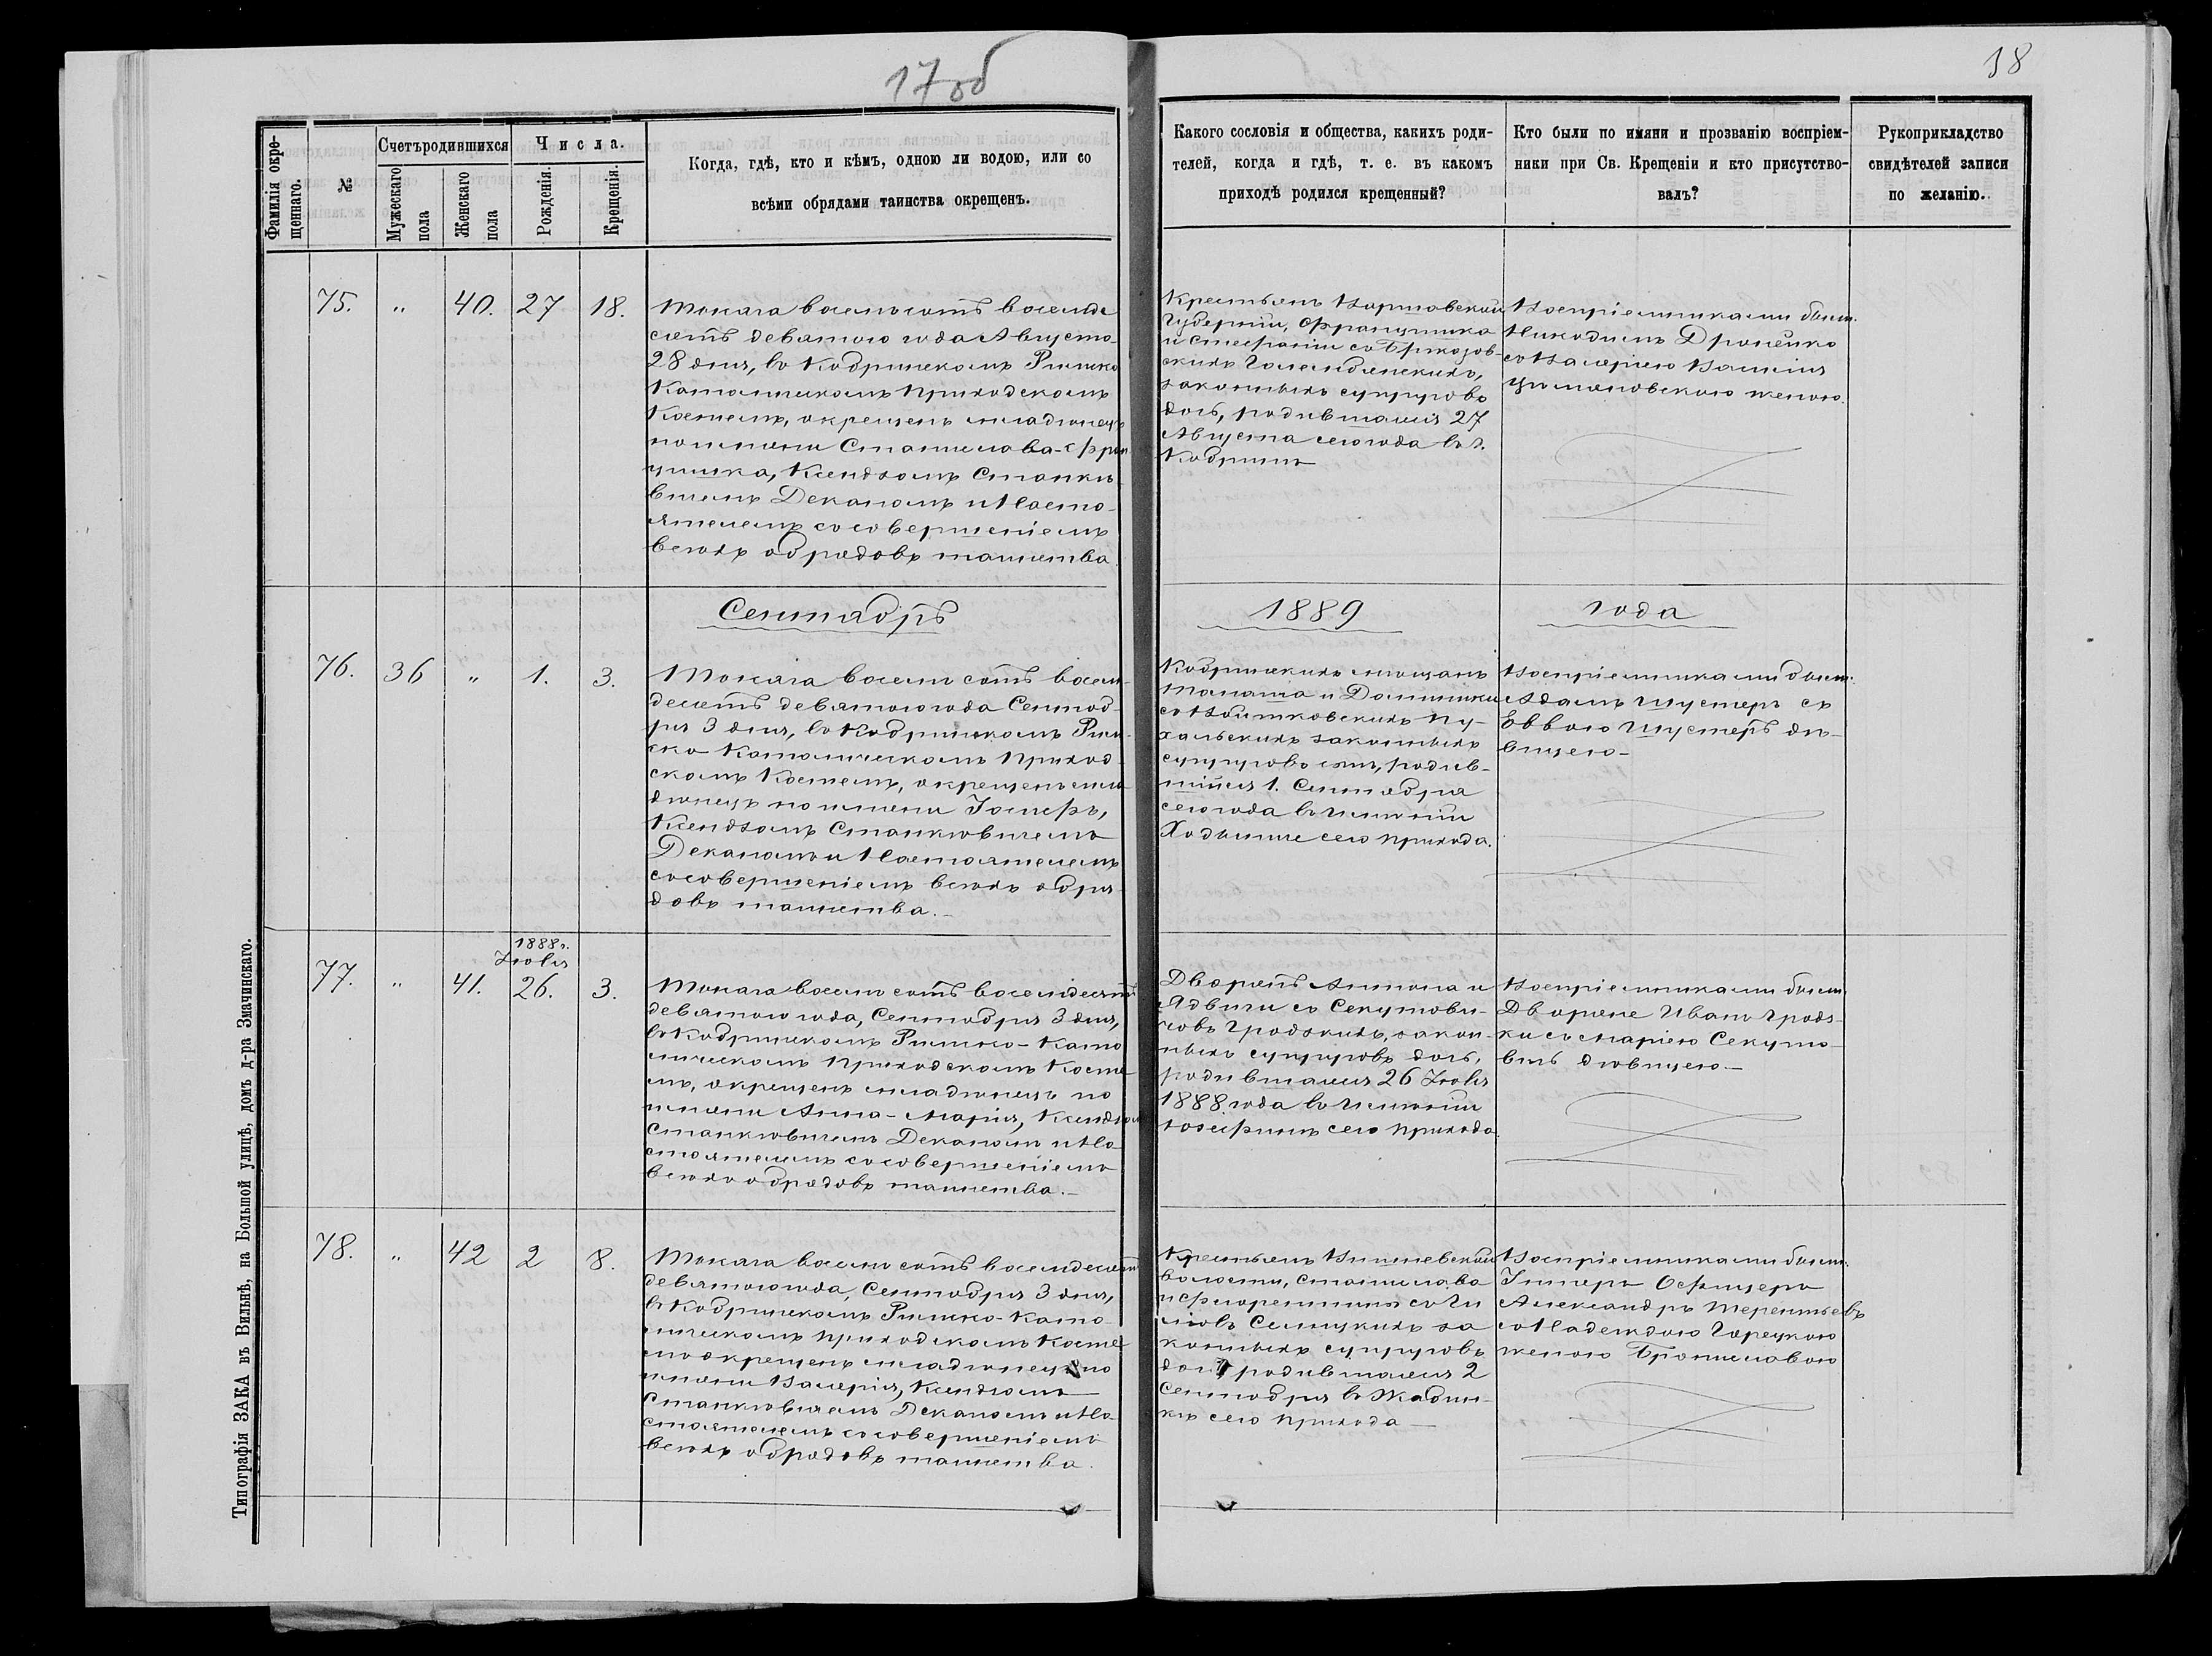 17 об
18
Типографія ЗАКА въ Вильнѣ, на Большой улицѣ, домъ д-ра Змачинскаго.
Фамилія окре-
щеннаго.
№
Счетъродившихся
Мужескаго
пола
Женскаго
пола
Числа.
Рожденія.
Крещенія.
Когда, гдѣ, кто и кѣмъ, одною ли водою, или со
всѣми обрядами таинства окрещенъ.
Какого сословія и общества, какихъ роди-
телей, когда и гдѣ, т. е. въ какомъ
приходѣ родился крещенный?
Кто были по имяни и прозванію воспріем-
ники при Св. Крещеніи и кто присутство-
валъ?
Рукоприкладство
свидѣтелей записи
по желанію.
75. " 40. 27 18.
Тысяча восемьсотъ восемьде
сятъ девятого года Августа
28 дня, въ Кобринскомъ Римско
Католическомъ приходскомъ
Костелѣ, окрещенъ младенецъ
по имени Станислава-Фран
цишка, Ксендзомъ Станке
вичемъ Деканомъ и Насто-
ятелемъ со совершеніемъ
всѣхъ обрядовъ таинства.
Крестьянъ
Губерніи, Францишка
и Стефаніи съ
законныхъ супруговъ
дочь, родившаяся 27
Августа сего года въ г.
Кобринѣ
Воспріемниками были.
Никодимъ
съ Валеріею
женою.
Сентябрь
1889
года
76. 36 " 1. 3.
Тысяча восемь сотъ восем-
десятъ девятого года Сентяб-
ря 3 дня, въ Кобринскомъ Рим-
ско Католическомъ приход-
скомъ Костелѣ, окрещенъ мла-
денецъ по имени Іосифъ,
Ксендзомъ Станкевичемъ
Деканомъ и Настоятелемъ
со совершеніемъ всѣхъ обря-
довъ таинства.-
Кобринскихъ мѣщанъ
Игната и Доминики
съ Войтковскихъ Пу-
хальскихъ законныхъ
супруговъ сынъ, родив-
шійся 1. Сентября
сего года въ имѣніи
сего прихода.
Воспріемниками были.
Адамъ Шустеръ съ
Еввою Шустеръ дѣ-
вицею-
1888 г.
Іюля
77. " 41. 26. 3.
Тысяча восемь сотъ восемдесятъ
девятого года, Сентября 3 дня,
въ Кобринскомъ Римско-Като
лическомъ приходскомъ Косте
лѣ, окрещенъ младенецъ по
имени Анна-Марія, Ксендзомъ
Станкевичемъ Деканомъ и На-
стоятелемъ со совершеніемъ
всѣхъ обрядовъ таинства.-
Дворянъ Антона и
Ядвиги съ Секутови-
човъ Гродзкихъ, закон-
ныхъ супруговъ дочь,
родившаяся 26 Іюля
1888 года въ имѣніи
сего прихода
Воспріемниками были.
Дворяне Иванъ Гродз-
ки съ Маріею Секуто-
вичъ дѣвицею-
78. " 42 2 8.
Тысяча восемь сотъ восемдесятъ
девятого года, Сентября 3 дня,
въ Кобринскомъ Римско-Като
лическомъ приходскомъ Косте
лѣ окрещенъ младенецъ по
имени Валерія, Ксендзомъ
Станкевичемъ Деканомъ и На-
стоятелемъ со совершеніемъ
всѣхъ обрядовъ таинства.
Крестьянъ
волости, Станислава
и Флорентины съ
законныхъ супруговъ
дочь родившаяся 2
Сентября въ Жабин-
кѣ сего прихода-
Воспріемниками были.
Унтеръ Офицеръ
Александръ Терентьевъ
съ Надеждою Горецкою
женою Брониславою